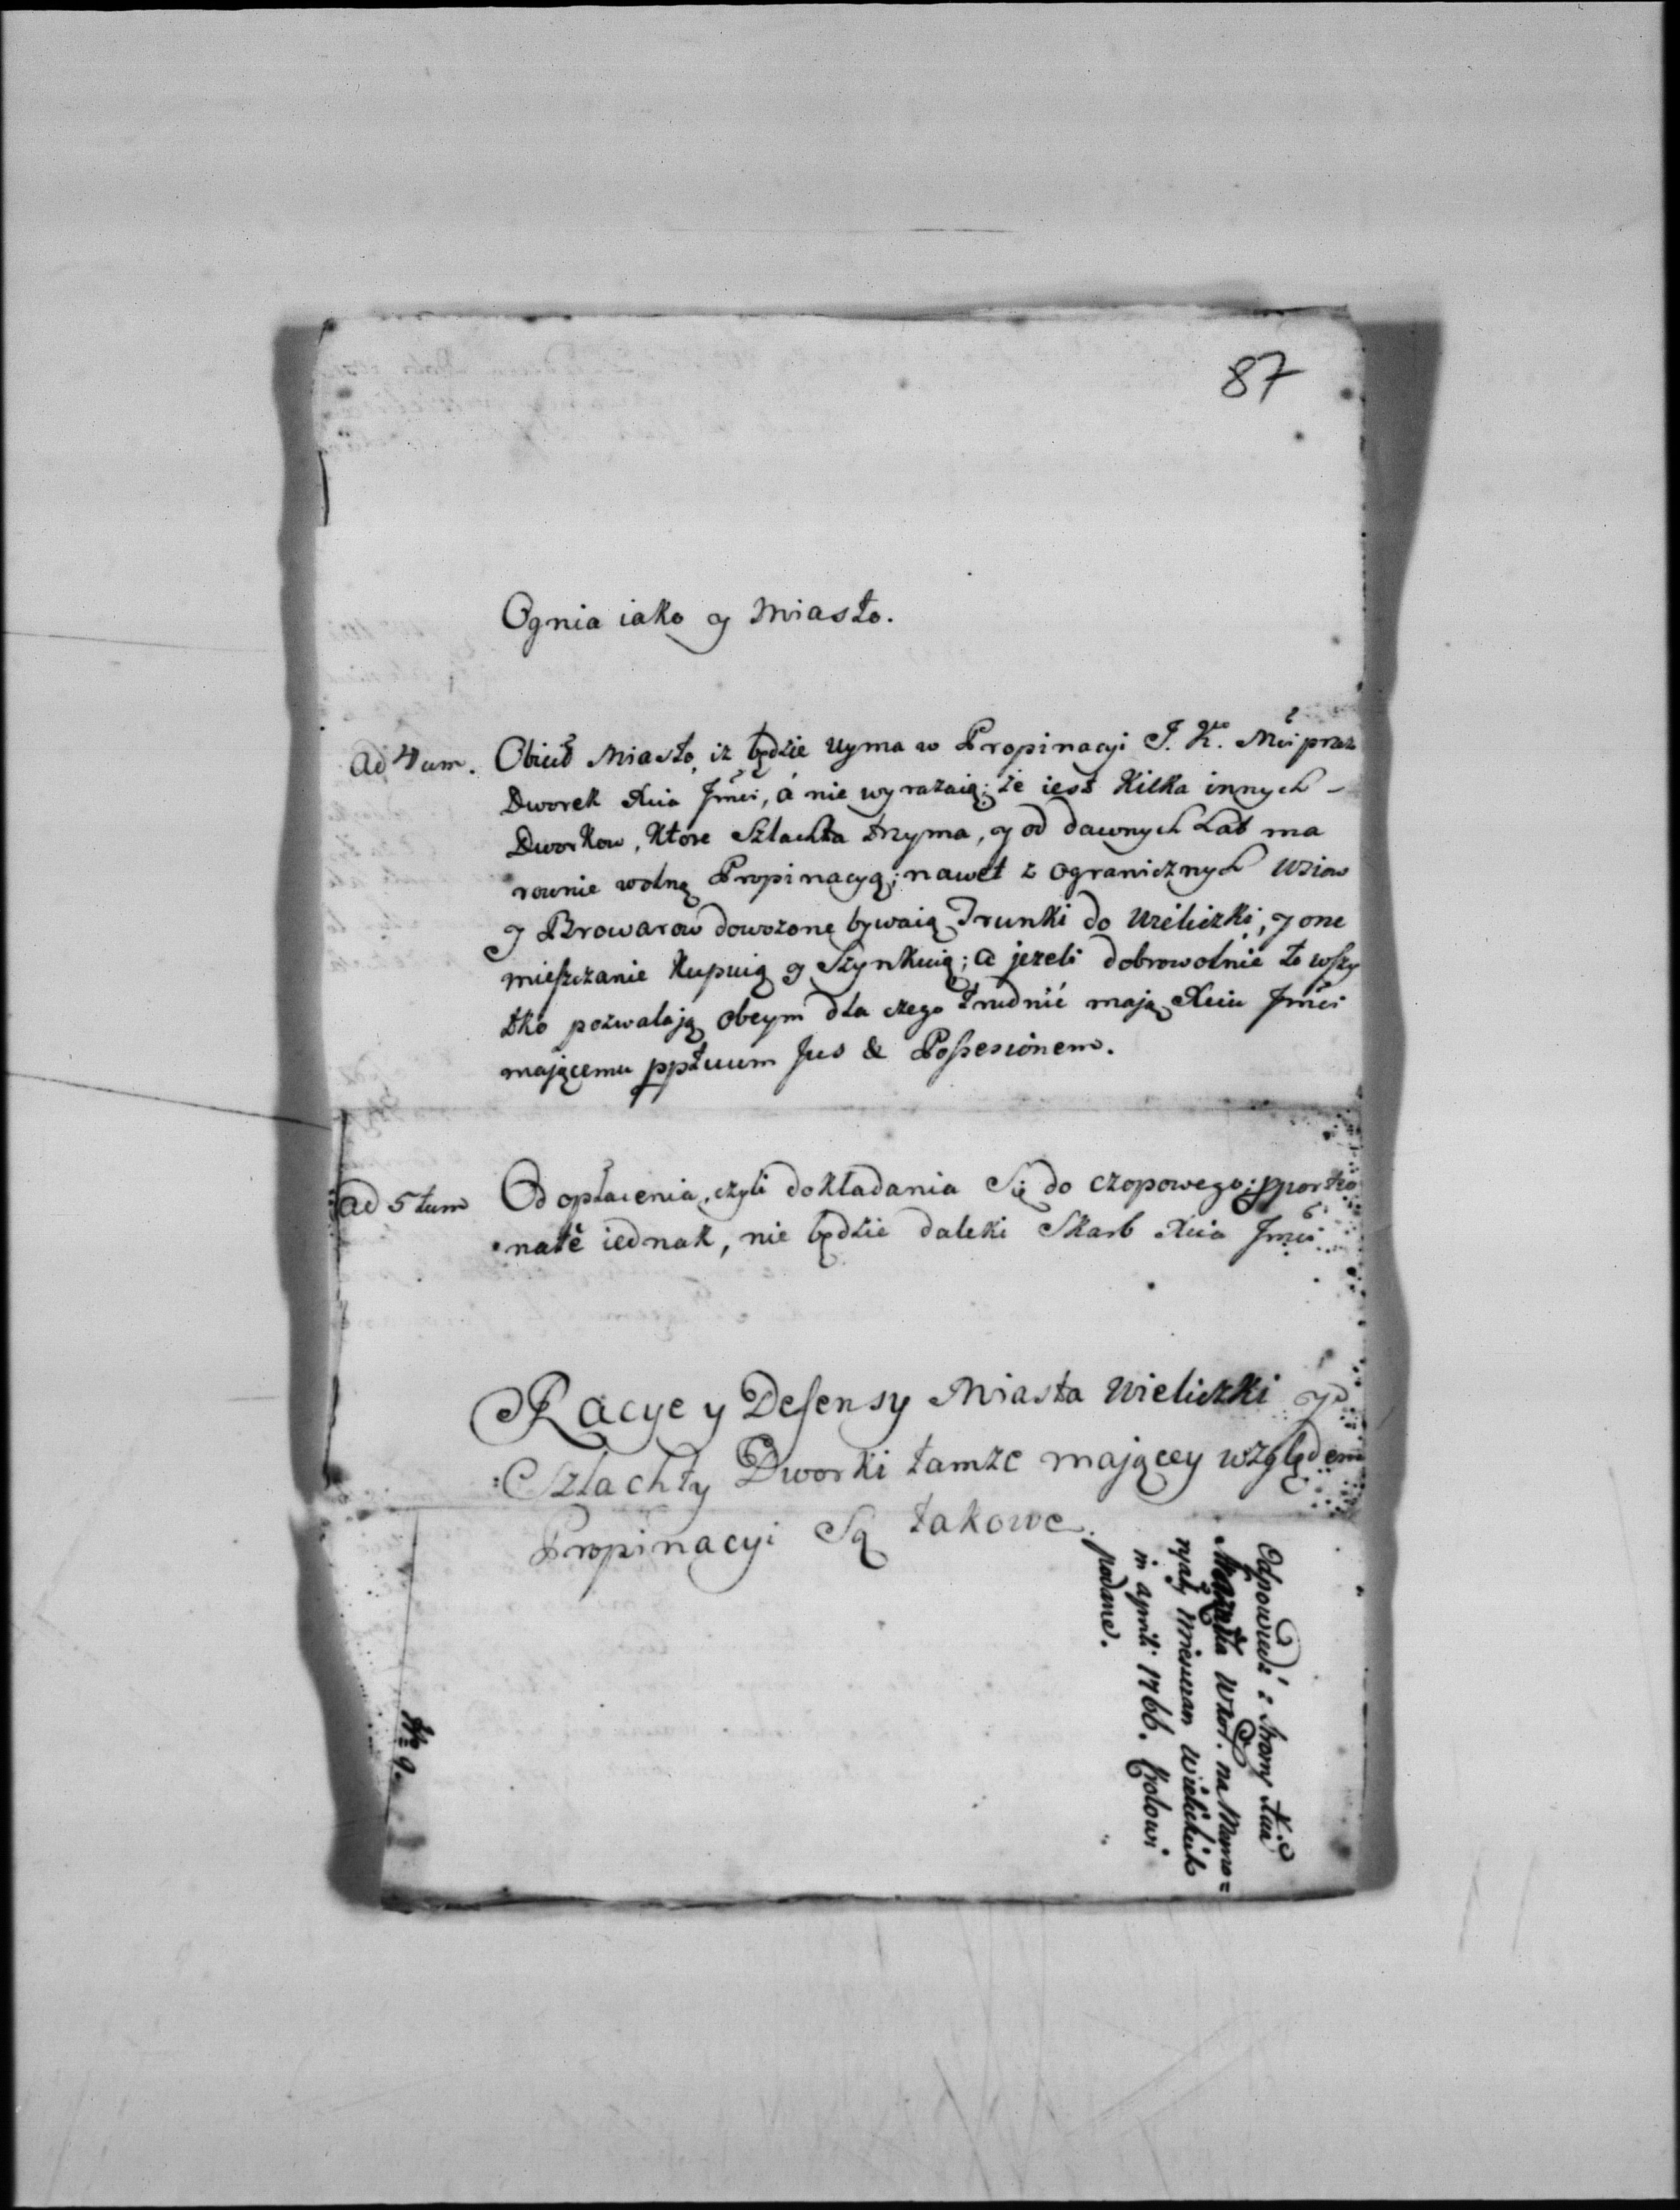 87
Ognia iako y Miasto.
Ad 4um. Miasto, iz będzie uyma w Propinacyi J. K. Mci przez
Dworek Xcia Jmci, á nie wyrażaią; że iest Kilka innych
Dworkow, Ktore Szlachta trzyma, y od dawnych Lat ma
rownie wolną Propinacyą; nawet z ogranicznych Wsiow
y Browarow dowożone bywaią Trunki do Wieliczki; y one
mieszczanie Kupuią y Szynkuią; a jezeli dobrowolnie to wszy
tko pozwalają obcym dla czego trudnić mają Xciu Jmci
mającemu pptuum Jus & Possesionem.
Ad 5tum Od opłacenia, czyli dokładania Się do czopowego; pporcio
nate iednak, nie będzie daleki Skarb Xcia Jmci
Racye y Defensy Miasta Wieliczki y
Szlachty Dworki tamze mającey względem
Propinacyi Są takowe.
Odpowiedź z Strony Xcia
Wkor. na Memo=
ryały Mieszczan Wielickich
in Aprili 1766. Krolowi
podane.
No 9.